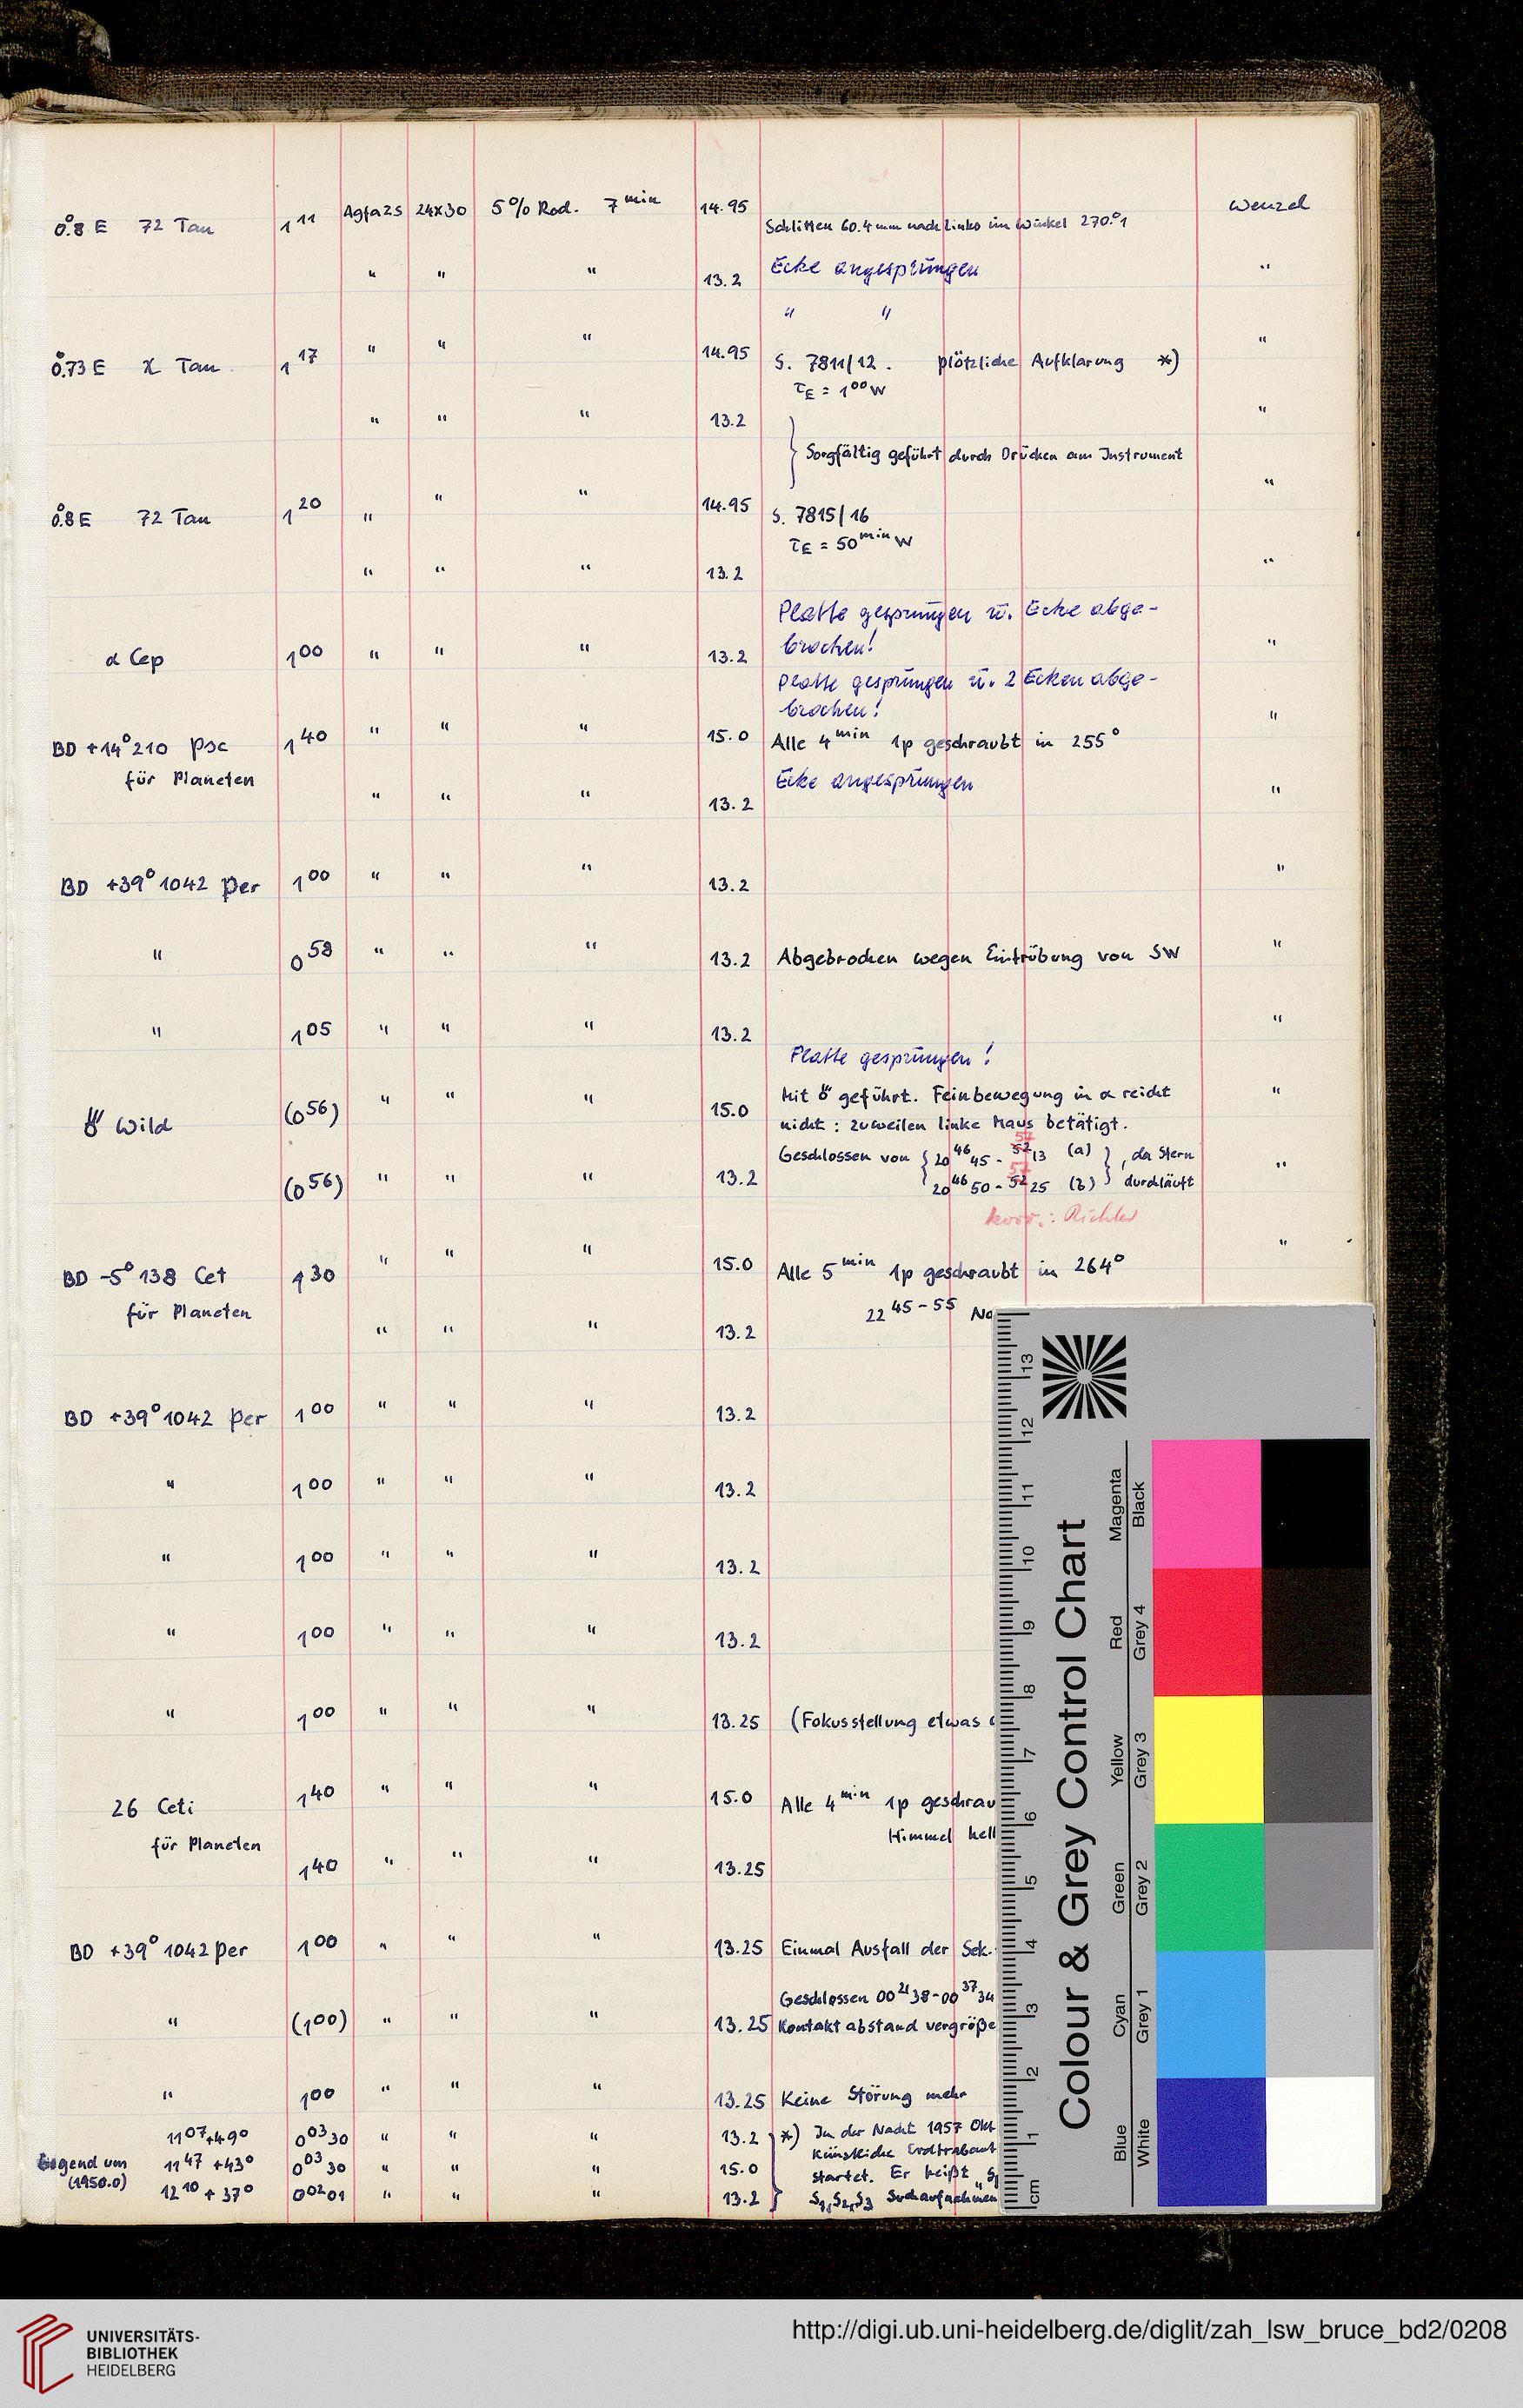 0.°8 E 72 Tau 1 11 Agfa 2S 24x30 5% Rod. 7 min 14.95 Wenzel
Schlitten 60.4 mm nach links im Winkel 270.°1
" " " 13.2 Ecke angesprungen "
" "
0.°73 E χ Tau 1 17 " " " 14.95 S. 7811/12. plötzliche Aufklarung *) "
τE = 1 00 W
" " " 13.2 "
Sorgfältig geführt durch Drücken am Instrument
0.°8 E 72 Tau 1 20 " " " 14.95 S. 7815/16 "
τE = 50 min W
" " " 13.2 "
Platte gesprungen u. Ecke abge-
α Cep 1 00 " " " 13.2 brochen! "
Platte gesprungen u. 2 Ecken abge-
brochen!
BD +14° 210 Psc 1 40 " " " 15.0 Alle 4 min 1p geschraubt in 255° "
für Planeten
" " " 13.2 Ecke angesprungen "
BD +39° 1042 Per 1 00 " " " 13.2 "
" 0 58 " " " 13.2 Abgebrochen wegen Eintrübung von SW "
" 1 05 " " " 13.2 "
Platte gesprungen!
☄ Wild (0 56) " " " 15.0 Mit ☄ geführt. Feinbewegung in α reicht "
nicht: zuweilen linke Maus betätigt.
(0 56) " " " 13.2 Geschlossen von { 20 46 45 - 52 13 (a) }, da Stern "
20 46 50 - 52 25 (b) durchläuft
korr.: Richter
BD -5° 138 Cet 1 30 " " " 15.0 Alle 5 min 1p geschraubt in 264° "
für Planeten
" " " 13.2 22 45-55
BD +39° 1042 Per 1 00 " " " 13.2
" 1 00 " " " 13.2
" 1 00 " " " 13.2
" 1 00 " " " 13.2
" 1 00 " " " 13.25 (Fokusstellung etwas
26 Ceti 1 40 " " " 15.0 Alle 4 min 1p geschrau
für Planeten Himmel hell
1 40 " " " 13.25
BD +39° 1042 Per 1 00 " " " 13.25 Einmal Ausfall der Sek.
Geschlossen 00 21 38-00 37 34
" (1 00) " " " 13.25 Kontaktabstand vergröße
" 1 00 " " " 13.25 Keine Störung mehr
11 07 +49° 0 03 30 " " " 13.2 *) In der Nacht 1957 Okt
Künstliche Erdtrabant
Gegend um 11 47 +43° 0 03 30 " " " 15.0 startet. Er heißt „S
(1950.0) 12 10 +37° 0 02 01 " " " 13.2 S1, S2, S3 Suchaufnahmen
Colour & Grey Control Chart
Magenta Red Yellow Green Cyan Blue
Black Grey 4 Grey 3 Grey 2 Grey 1 White
cm 1 2 3 4 5 6 7 8 9 10 11 12 13
UNIVERSITÄTS-
BIBLIOTHEK
HEIDELBERG
http://digi.ub.uni-heidelberg.de/diglit/zah_lsw_bruce_bd2/0208